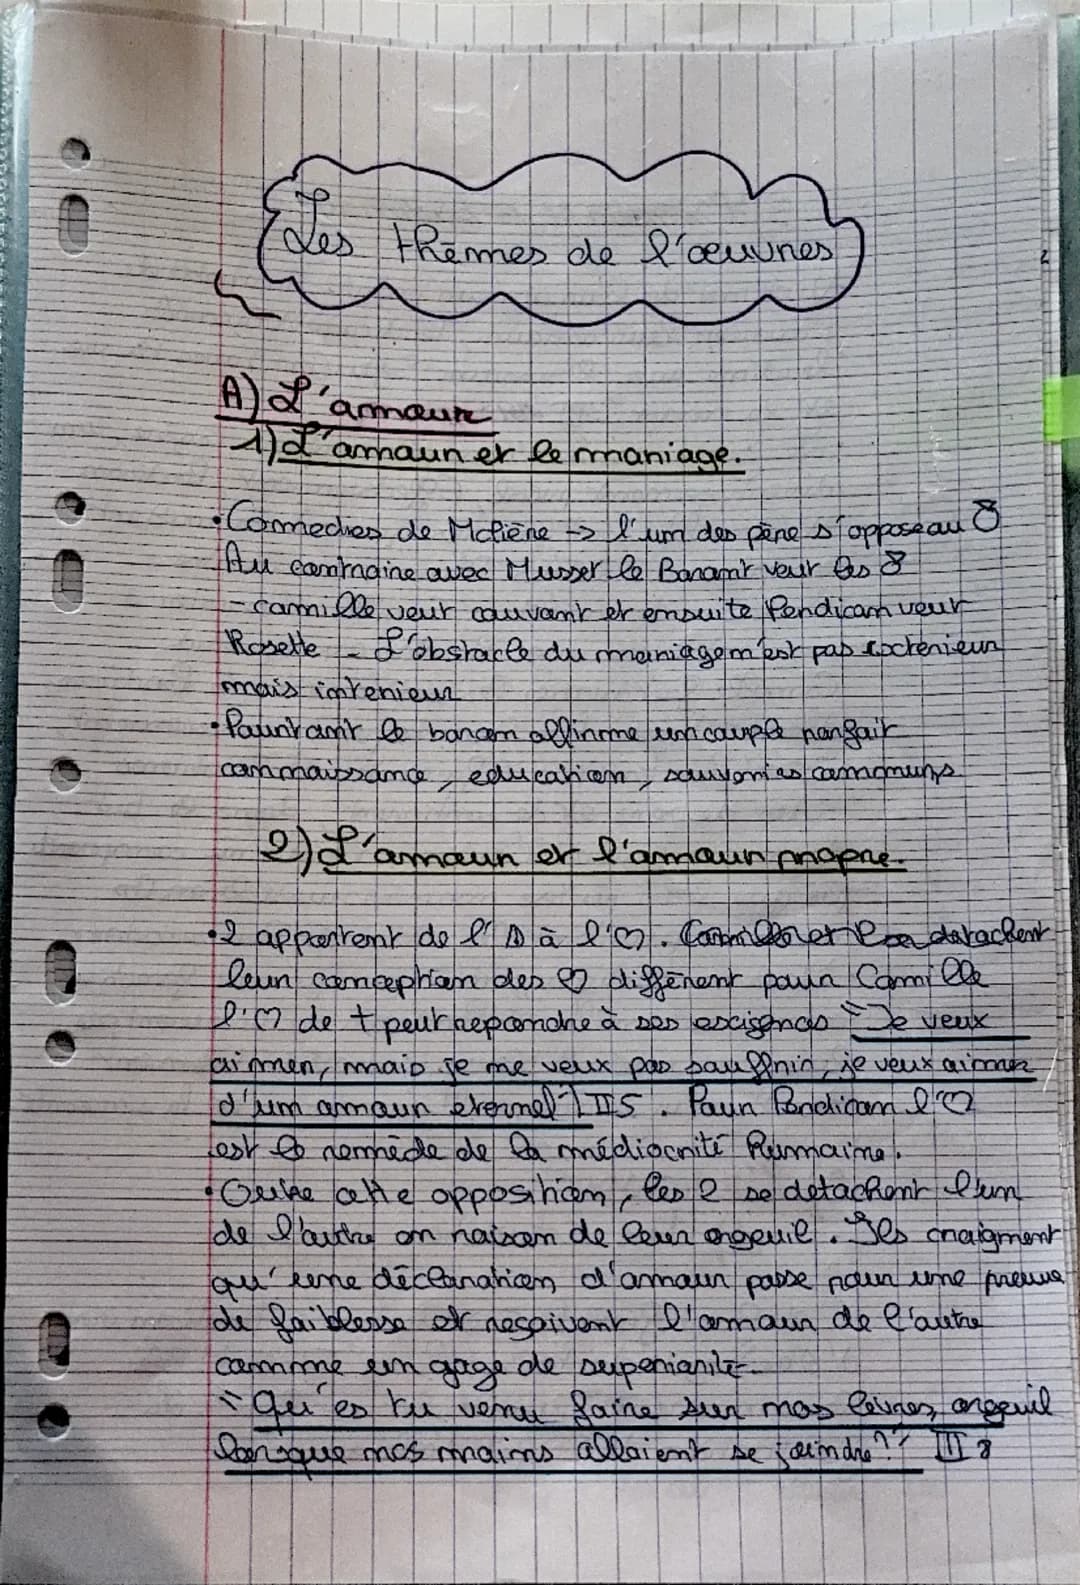 Les thèmes de l'œuvres
A) L'amour
1) L'amour et le mariage.
• Comedies de Molière → l'un des père s'oppose au 8
Au contraire avec Musset le Baront veut les 8
- camille veut couvant et ensuite Perdican veut
Rosette - L'obstacle du mariage n'est pas exterieur
mais interieur
• Pourtant le baron affirme un couple parfait
connaissance, education, souvenirs communs
2) L'amour et l'amour propre.
• 2 apportent de l' à l'♡. Camille et detachent
leur conception des ♡ différent pour Camille
l'♡ de t peut repondre à ses exigences "Je veux
aimer, mais je ne veux pas souffrir, je veux aimer
d'un amour eternel" II 5. Pour Perdican l'♡
est le remède de la médiocrité humaine.
• Outre cette opposition, les 2 se detachent l'un
de l'autre en raison de leur orgeuil. Ils craigment
qu'une déclaration d'amour passe pour une preuve
de faiblesse et reçoivent l'amour de l'autre
comme un gage de superiorité
"Qu'es tu venu faire sur mos lèvres, orgeuil
lorsque mos mains allaient se joindre?" III 8